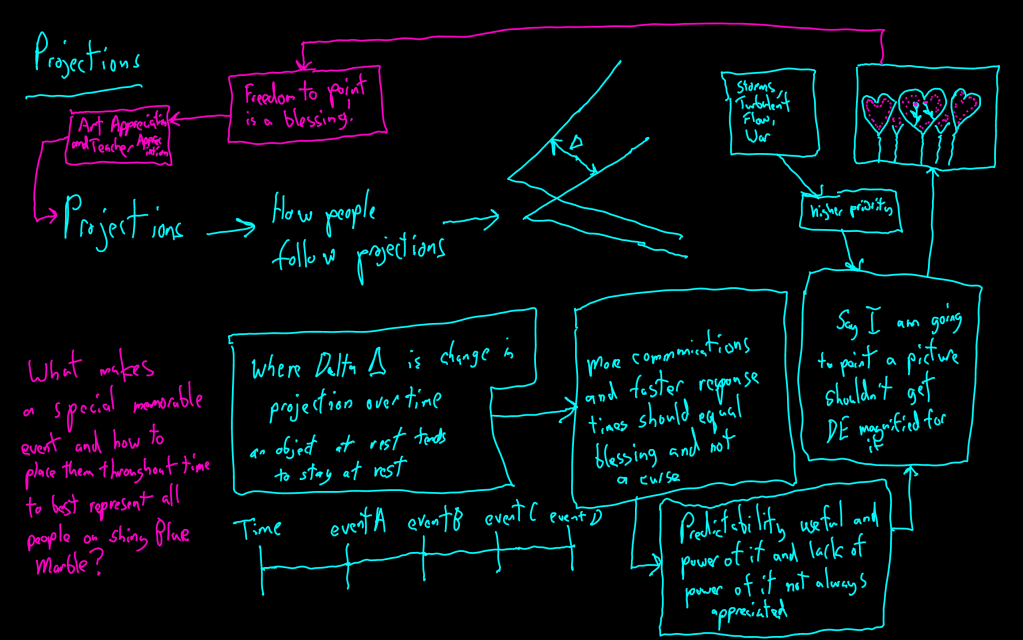 Projections
Freedom to paint
is a blessing.
Art Appreciation
and Teacher Appreciation
Projections
How people
follow projections
Δ
Storms,
Turbulent
Flow,
War
higher priority
Say I am going
to paint a picture
shouldn't get
DE magnified for
it
Where Delta Δ is change in
projection over time
an object at rest tends
to stay at rest
More commmications
and faster response
times should equal
blessing and not
a curse
What makes
a special memorable
event and how to
place them throughout time
to best represent all
people on shiny Blue
Marble?
Time event A event B event C event D
Predictability useful and
power of it and lack of
power of it not always
appreciated